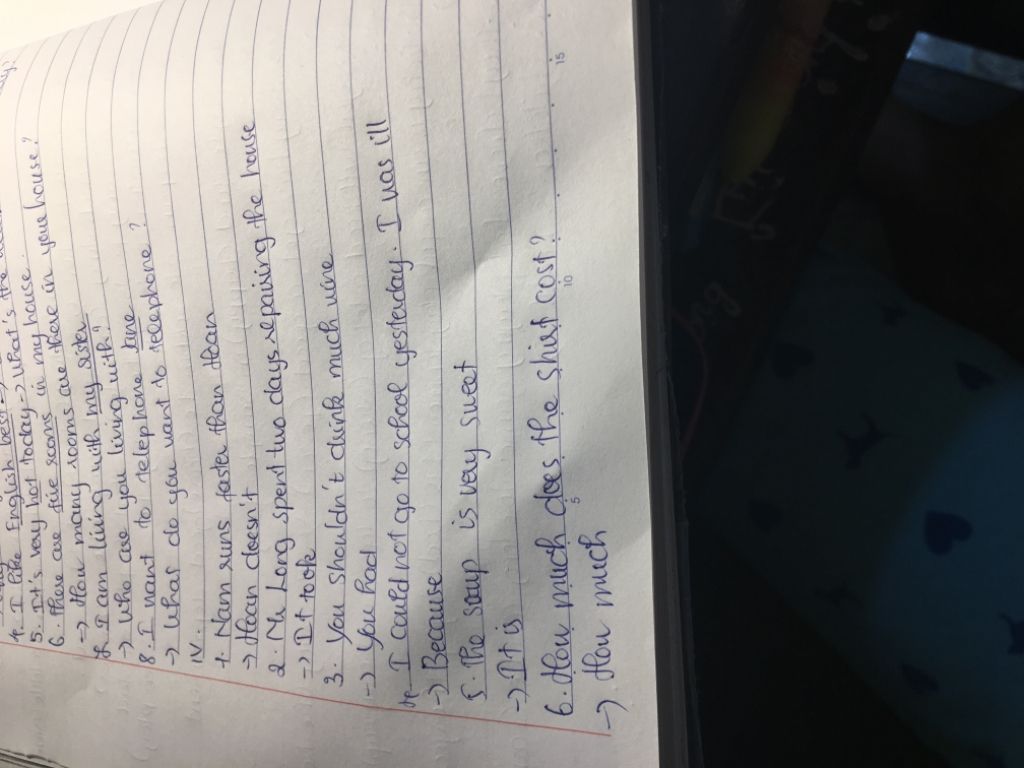 4. I like English best →
5. It's very hot today → what's the
6. There are five rooms in my house.
→ How many rooms are there in your house?
7. I am living with my sister
→ Who are you living with?
8. I want to telephone
→ What do you want to telephone?
IV.
1. Nam runs faster than Hoan
→ Hoan doesn't
2. Mr Long spent two days repairing the house
→ It took
3. You shouldn't drink much wine
→ You had
4. I could not go to school yesterday. I was ill
→ Because
5. The soup is very sweet
→ It is
6. How much does the shirt cost?
→ How much
5
10
15